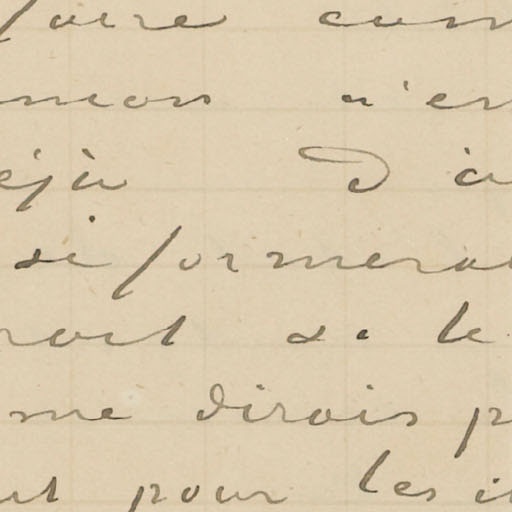 faire com
n'en
éjà D'a
si formerai
roit si le
me dirois p
ut pour les i